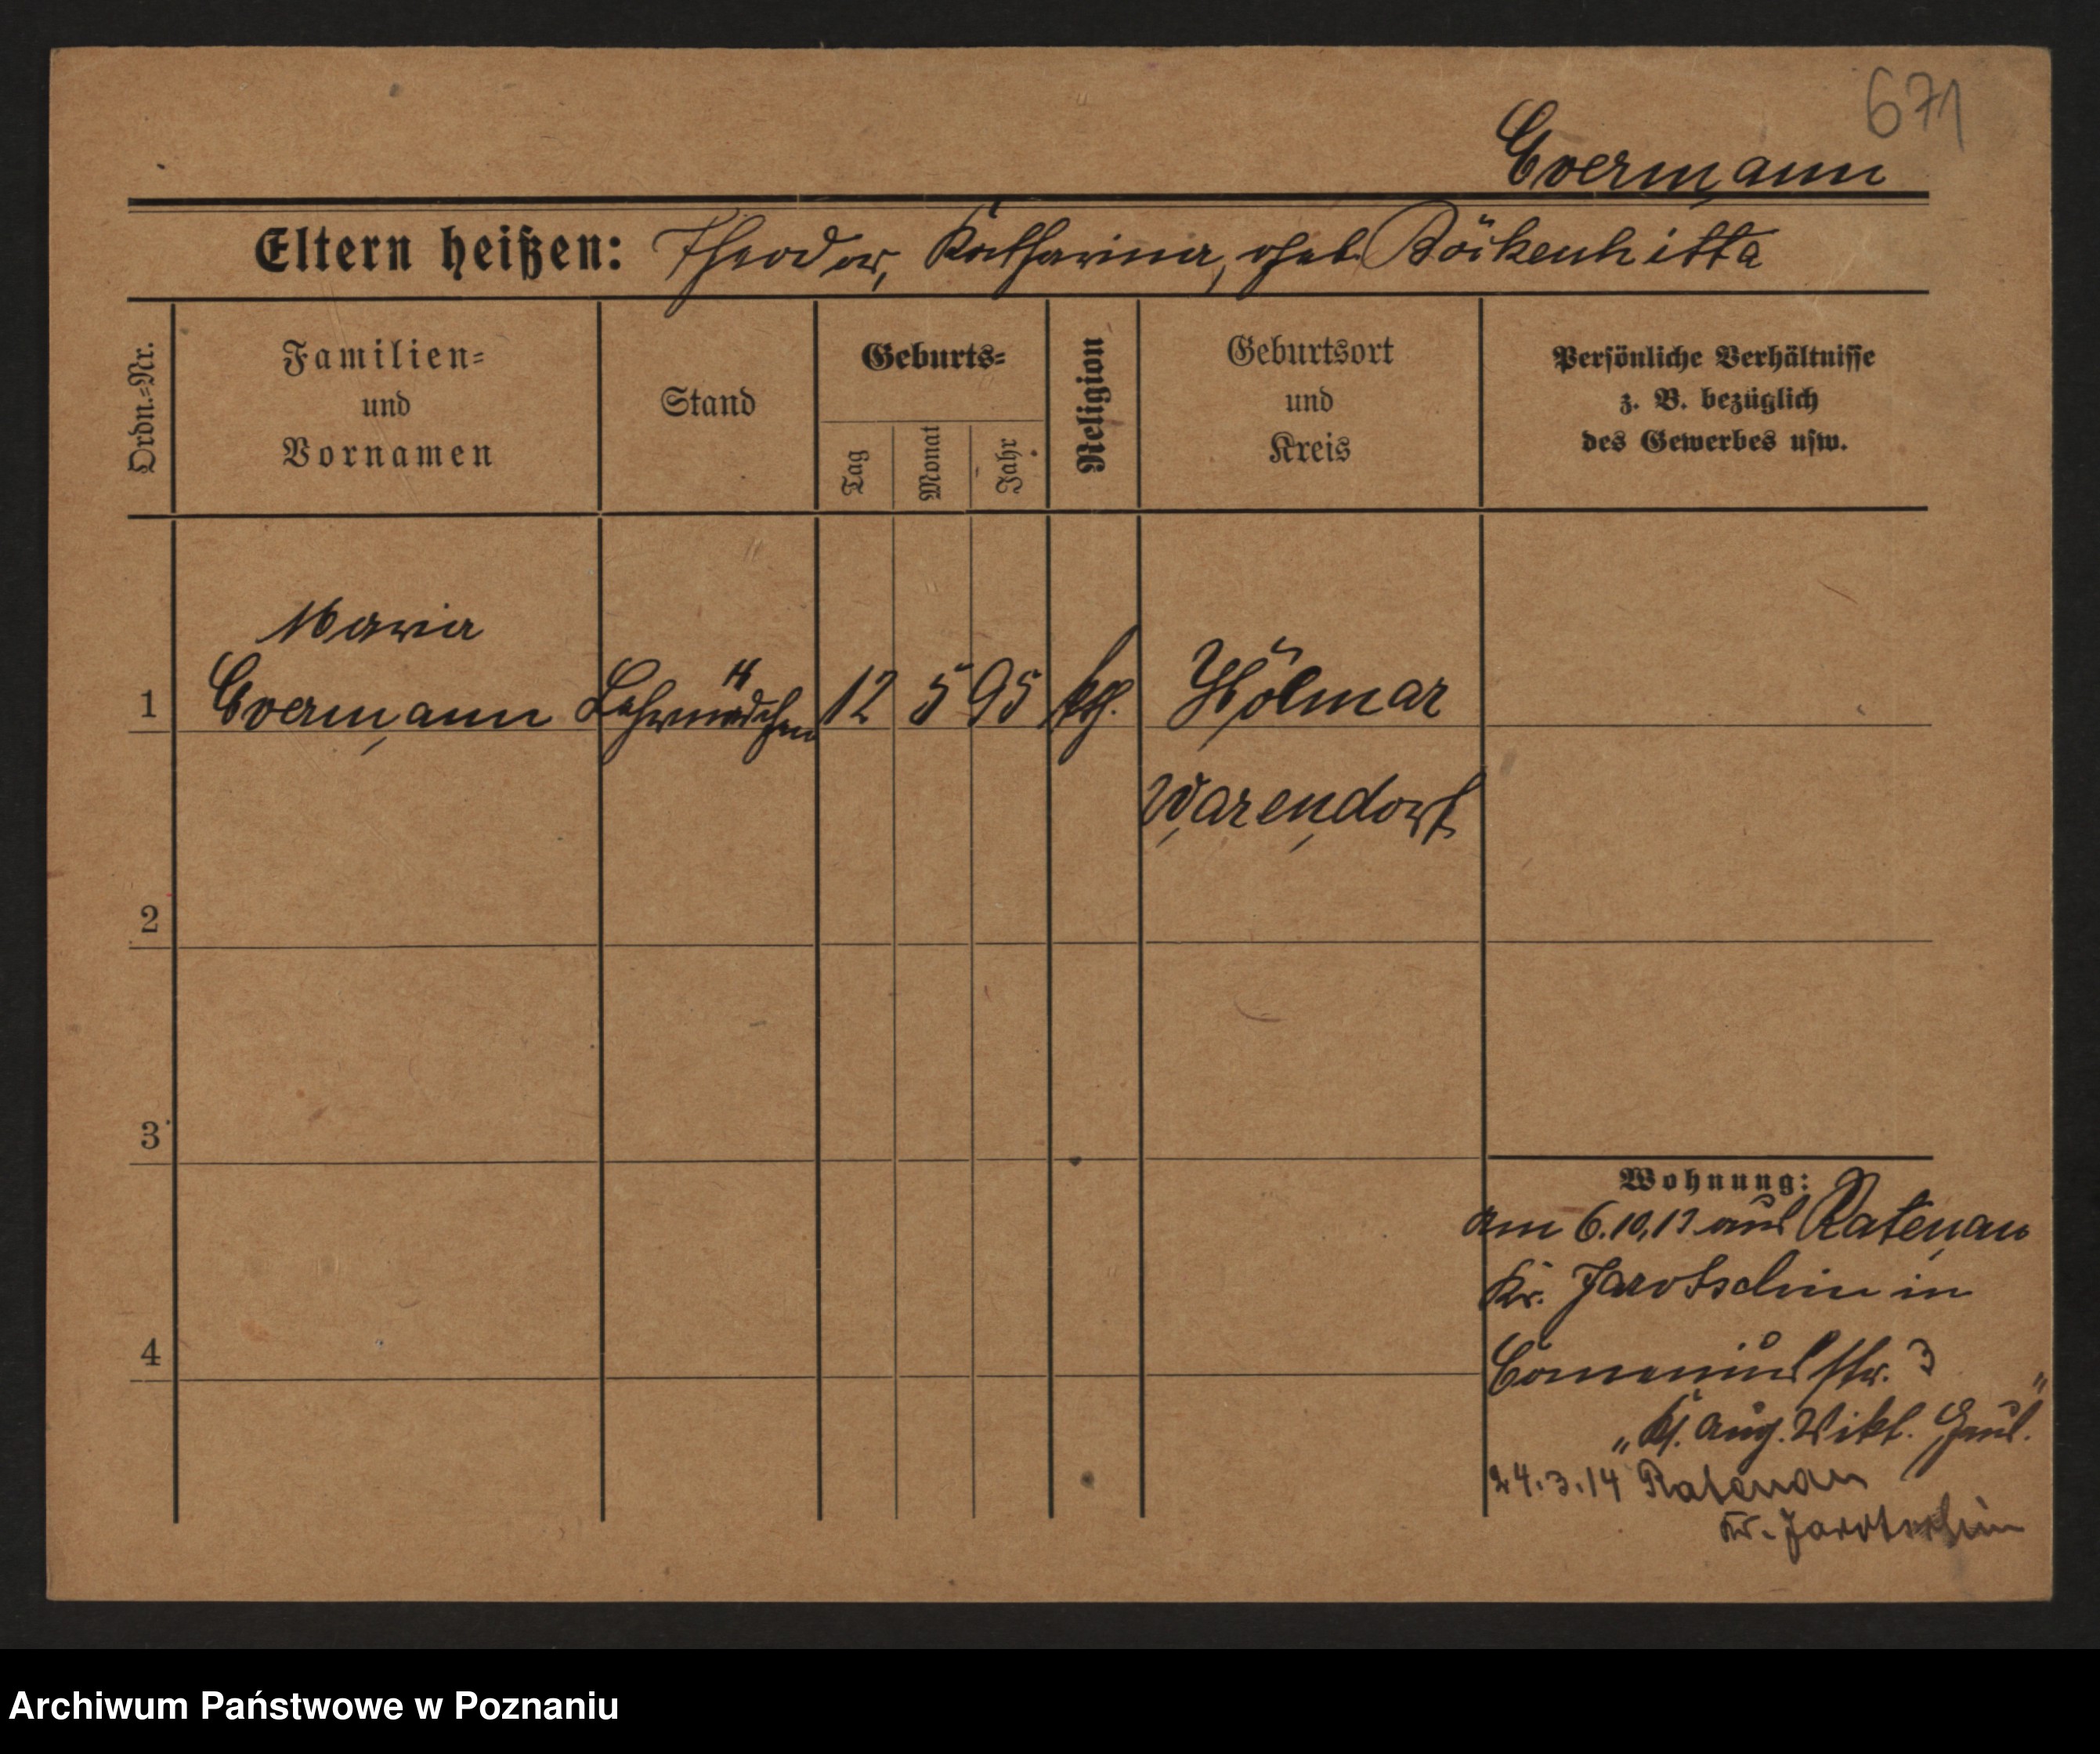 671
Evermann
Eltern heißen: Theodor, Katharina, geb. Böckenhitta
Ordn.=Nr.
Familien=
und
Vornamen
Stand
Geburts=
Tag
Monat
Jahr
Religion
Geburtsort
und
Kreis
Persönliche Verhältnisse
z. B. bezüglich
des Gewerbes usw.
Maria
1 Evermann Lehrmädchen 12 5 95 kth. Hölmar
Warendorf
2
3
Wohnung:
am 6.10.13 aus Ratenau
Kr. Jarotschin in
4 Comeniusstr. 3
„Ks. Aug. Vikt. Haus."
24.3.14 Ratenau
Kr. Jarotschin
Archiwum Państwowe w Poznaniu